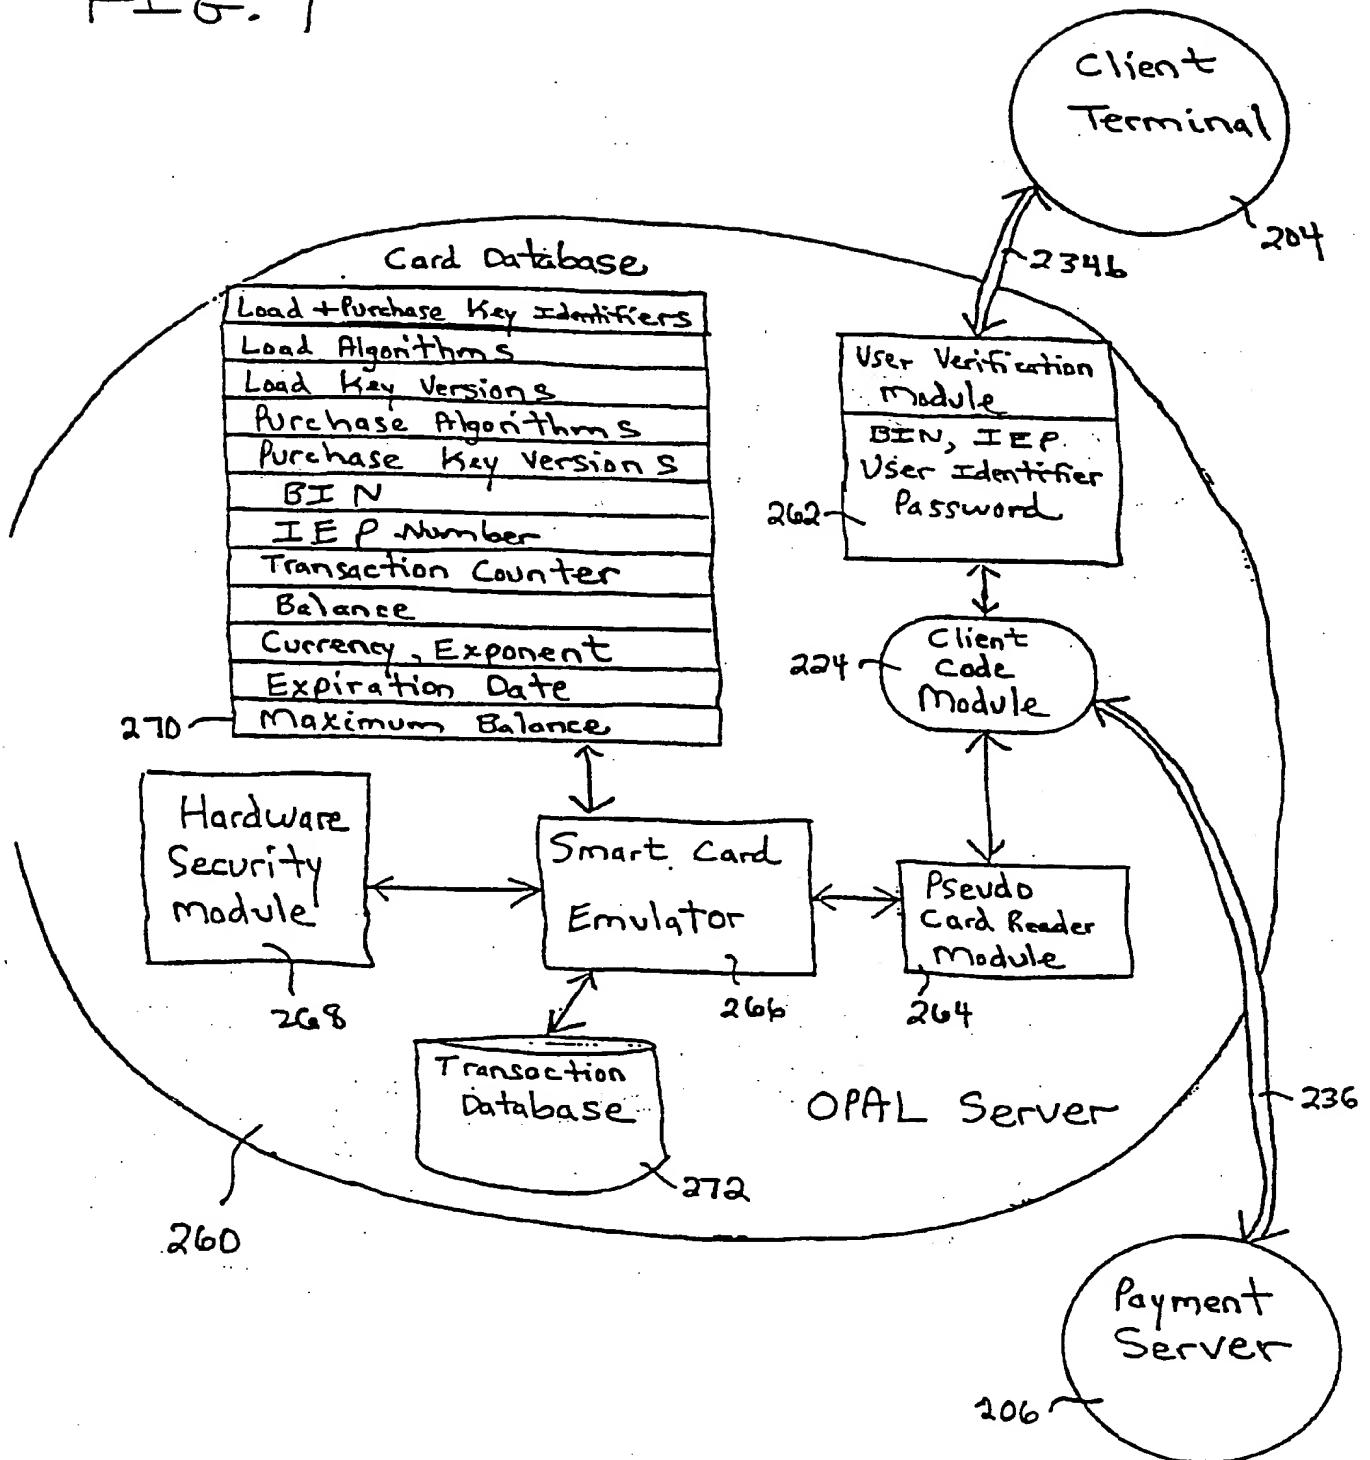 FIG. 7
Client
Terminal
204
234b
Card Database
Load + Purchase Key Identifiers
Load Algorithms
Load Key Versions
Purchase Algorithms
Purchase Key Versions
BIN
IEP Number
Transaction Counter
Balance
Currency, Exponent
Expiration Date
Maximum Balance
270
User Verification
Module
BIN, IEP
User Identifier
Password
262
Client
Code
Module
224
Hardware
Security
Module
268
Smart Card
Emulator
266
Pseudo
Card Reader
Module
264
Transaction
Database
272
OPAL Server
236
260
Payment
Server
206